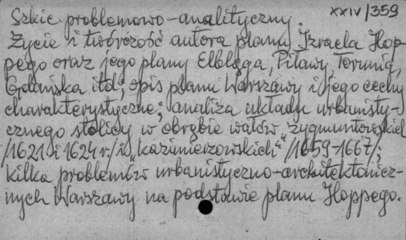 XXIV/359
Szkic problemowo-analityczny.
Życie i twórczość autora planu, Izraela Hop-
pego oraz jego plany Elbląga, Piławy, Torunia,
Gdańska itd; opis planu Warszawy i jego cechy
charakterystyczne; analiza układu urbanisty-
cznego stolicy w obrębie wałów "zygmuntowskich"
/1621 i 1624 r/ i "kazimierzowskich" /1659-1667/;
kilka problemów urbanistyczno-architektonicz-
nych Warszawy na podstawie planu Hoppego.